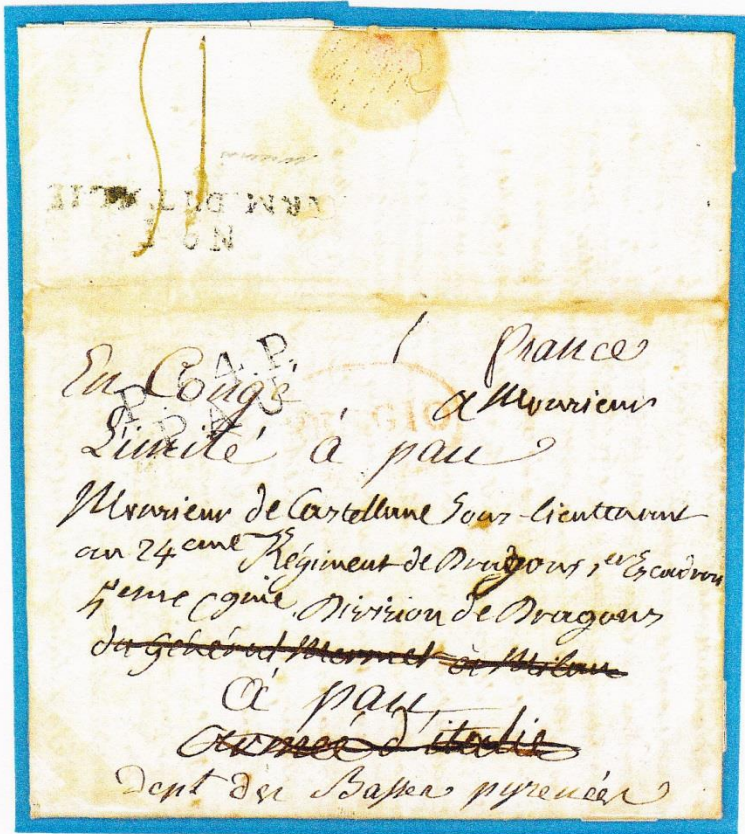 ARM. D'ITALIE
No 1
France
En Congé
P. 64. P.
PAU
a Monsieur
Limité à pau
Monsieur de Castellane Sous-lieutenant
au 24eme Régiment de Dragons, 1er Escadron
5eme Cgnie. Division de Dragons
du général Mermet à Milan
à pau,
armée d'italie
Dept des Basses pyrenées